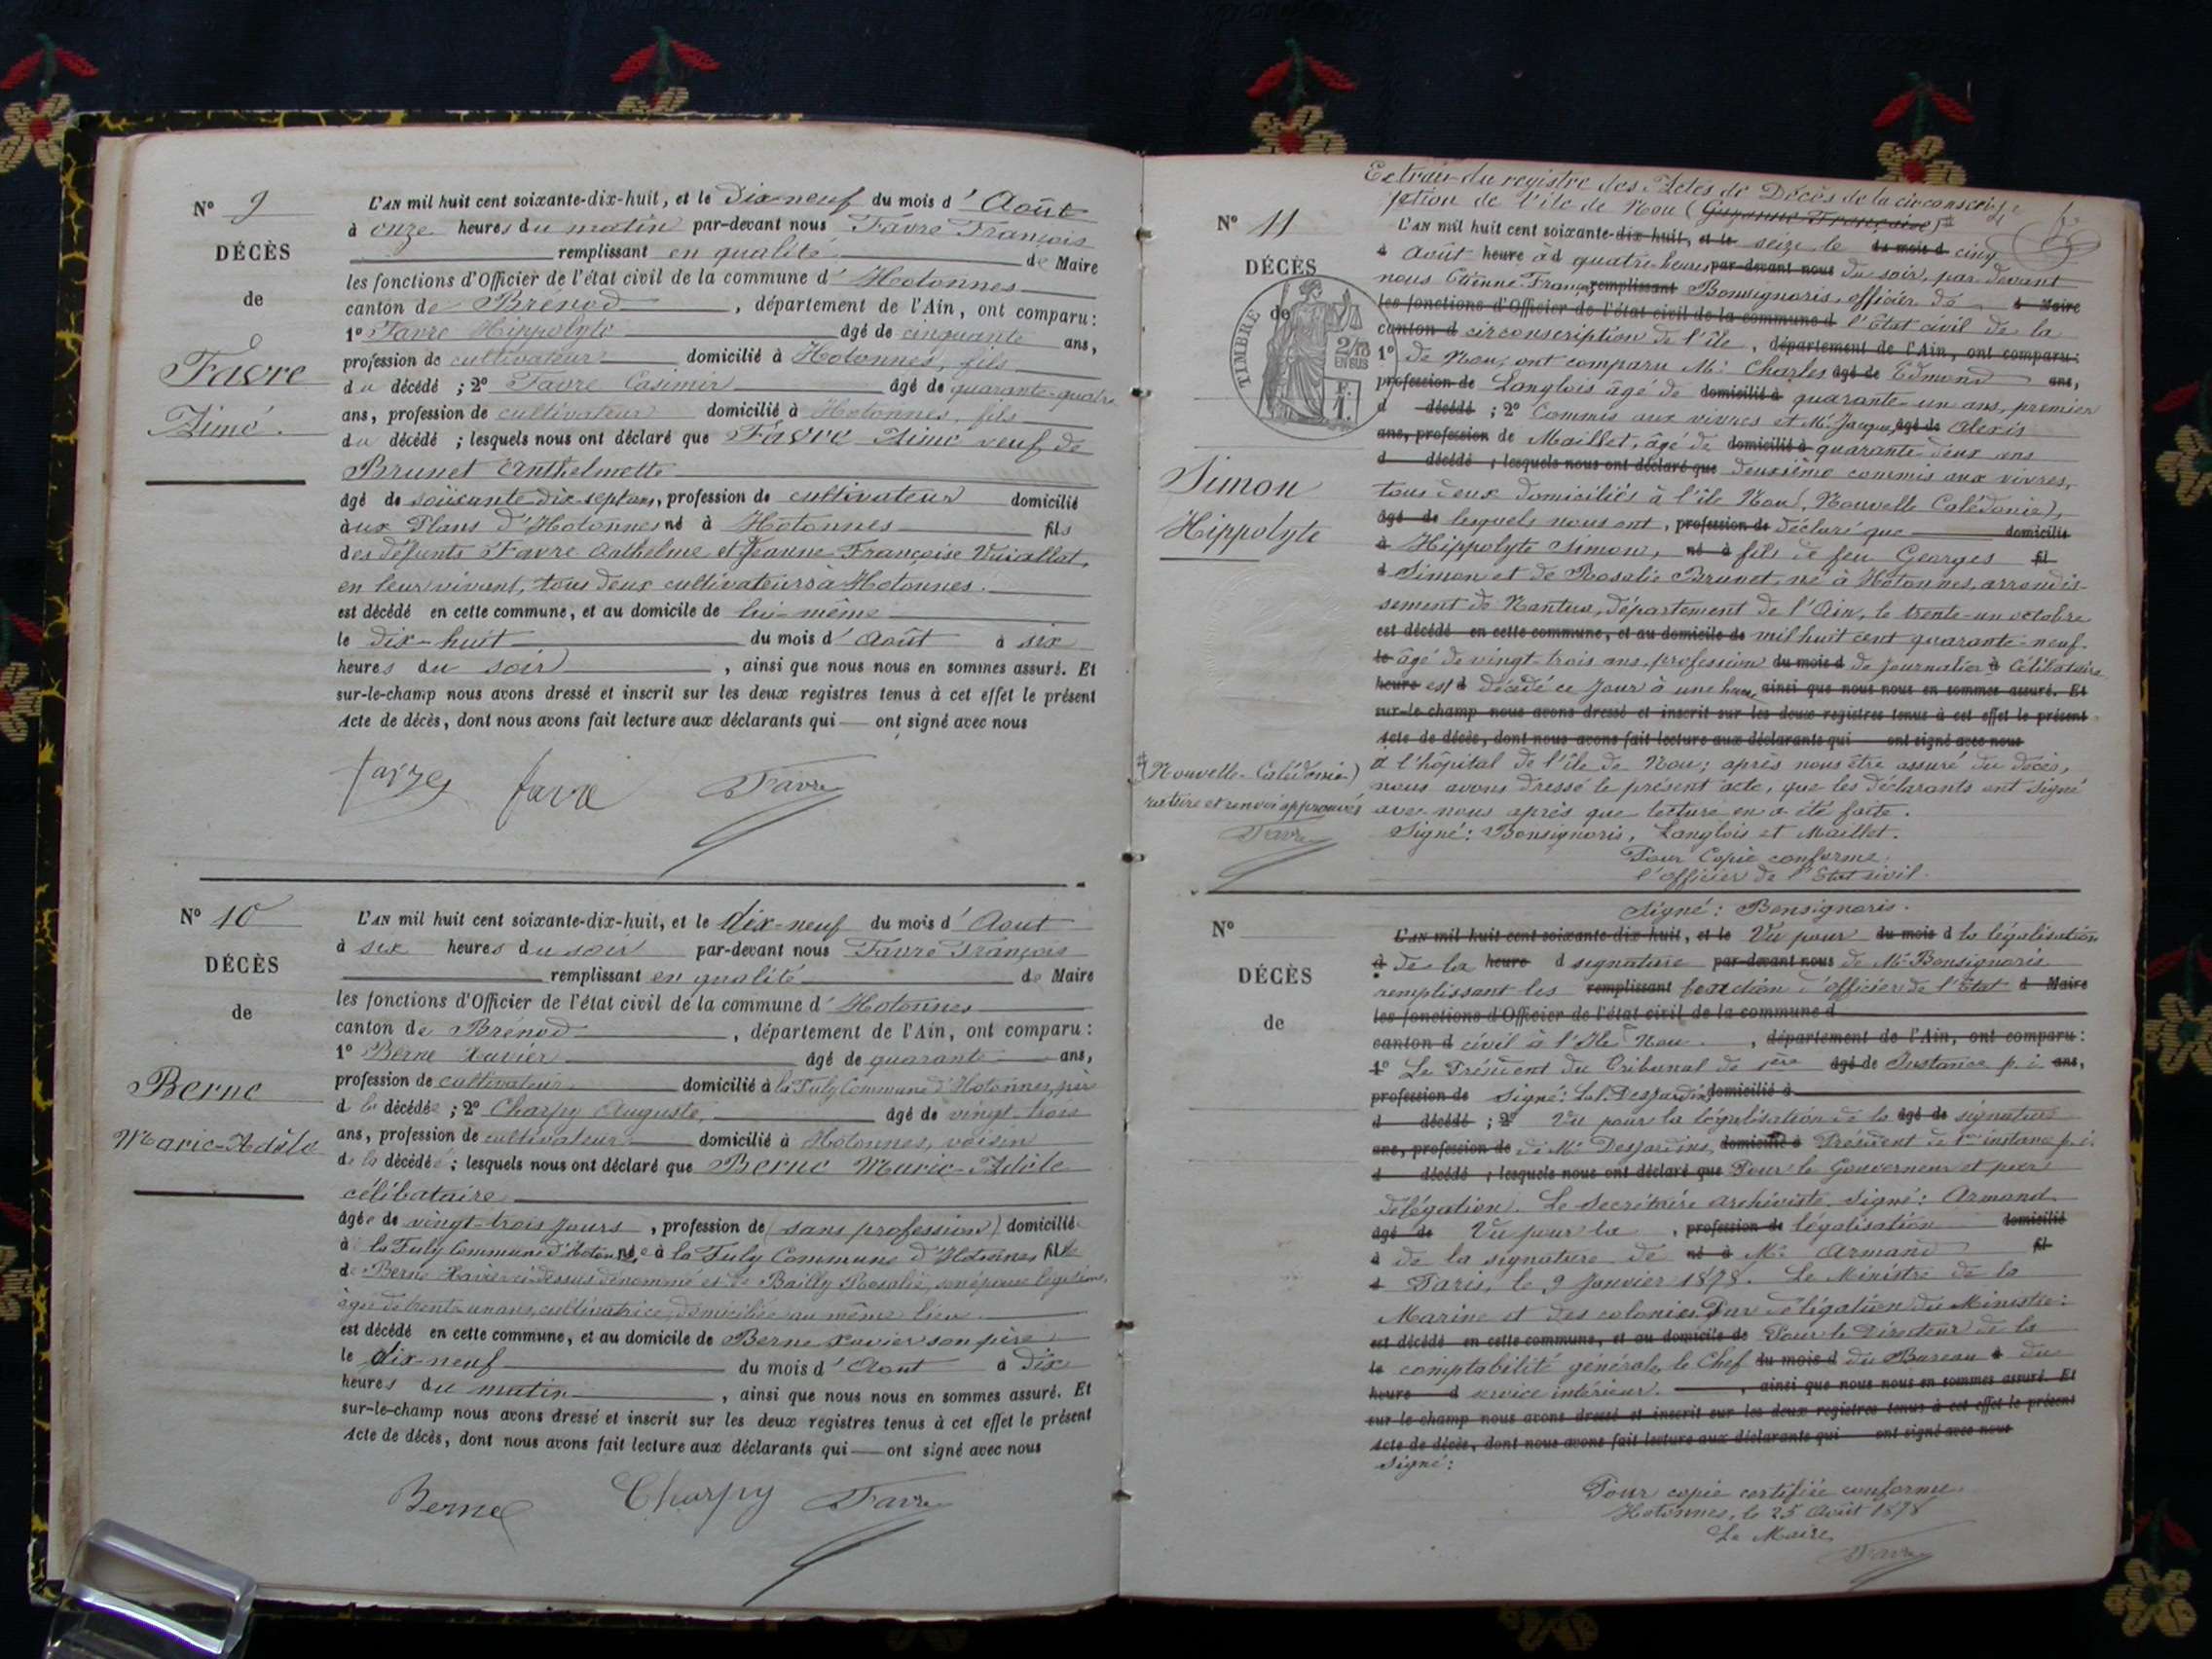 N° 9
DÉCÈS
de
Favre
Aimé.
L'AN mil huit cent soixante-dix-huit, et le Dix-neuf du mois d'Août
à onze heures du matin par-devant nous Favre François
remplissant en qualité de Maire
les fonctions d'Officier de l'état civil de la commune d'Hotonnes
canton de Brénod, département de l'Ain, ont comparu:
1° Favre Hippolyte âgé de cinquante ans,
profession de cultivateur domicilié à Hotonnes, fils
du décédé; 2° Favre Casimir âgé de quarante-quatre
ans, profession de cultivateur domicilié à Hotonnes, fils
du décédé; lesquels nous ont déclaré que Favre Aimé veuf de
Brunet Anthelmette
âgé de soixante dix-sept ans, profession de cultivateur domicilié
aux Plans d'Hotonnes né à Hotonnes fils
des défunts Favre Anthelme et Jeanne-Françoise Vuaillat,
en leur vivant, tous deux cultivateurs à Hotonnes.
est décédé en cette commune, et au domicile de lui-même
le dix-huit du mois d'Août à six
heures du soir, ainsi que nous nous en sommes assuré. Et
sur-le-champ nous avons dressé et inscrit sur les deux registres tenus à cet effet le présent
Acte de décès, dont nous avons fait lecture aux déclarants qui — ont signé avec nous
favre favre Favre
N° 10
DÉCÈS
de
Berne
Marie-Adèle
L'AN mil huit cent soixante-dix-huit, et le dix-neuf du mois d'Aout
à six heures du soir par-devant nous Favre François
remplissant en qualité de Maire
les fonctions d'Officier de l'état civil de la commune d'Hotonnes
canton de Brénod, département de l'Ain, ont comparu:
1° Berne Xavier âgé de quarante ans,
profession de cultivateur domicilié à la Tuly Commune d'Hotonnes, père
de la décédée; 2° Charpy Auguste, âgé de vingt-trois
ans, profession de cultivateur domicilié à Hotonnes, voisin
de la décédée; lesquels nous ont déclaré que Berne Marie-Adèle
célibataire
âgée de vingt-trois jours, profession de (sans profession) domiciliée
à la Tuly Commune d'Hotonnes née à la Tuly Commune d'Hotonnes fille
de Berne Xavier ci-dessus dénommé et de Bailly Rosalie, son épouse légitime,
âgée de trente-un ans, cultivatrice, domiciliée au même lieu
est décédé en cette commune, et au domicile de Berne Xavier son père
le dix-neuf du mois d'Aout à dix
heures du matin, ainsi que nous nous en sommes assuré. Et
sur-le-champ nous avons dressé et inscrit sur les deux registres tenus à cet effet le présent
Acte de décès, dont nous avons fait lecture aux déclarants qui — ont signé avec nous
Berne Charpy Favre
Extrait du registre des Actes de Décès de la circonscri-
ption de l'île de Nou (Guyanne Française)
N° 11
DÉCÈS
de
TIMBRE
2/10 EN SUS
F. 1.
Simon
Hippolyte
L'AN mil huit cent soixante-dix-huit, et le seize le du mois d cinq
à Août heure à d quatre heures par-devant nous du soir, par devant
nous Etienne François remplissant Bonsignoris, officier de d Maire
les fonctions d'Officier de l'état civil de la commune d l'Etat civil de la
canton d circonscription de l'île, département de l'Ain, ont comparu:
1° de Nou, ont comparu Mr. Charles âgé de Edmond ans,
profession de Langlois âgé de domicilié à quarante-un ans, premier
d décédé; 2° Commis aux vivres et Mr. Jacques âgé de Alexis
ans, profession de Maillet, âgé de domicilié à quarante-deux ans
d décédé; lesquels nous ont déclaré que deuxième commis aux vivres,
tous deux domiciliés à l'île Nou (Nouvelle Calédonie),
âgé de lesquels nous ont, profession de déclaré que domicilié
à Hippolyte Simon, né à fils de feu Georges fil
d Simon et de Rosalie Brunet, né à Hotonnes, arrondis-
sement de Nantua, département de l'Ain, le trente-un octobre
est décédé en cette commune, et au domicile de mil huit cent quarante-neuf
le âgé de vingt-trois ans, profession du mois d de journalier à célibataire
heure est d décédé ce jour à une heure, ainsi que nous nous en sommes assuré. Et
sur-le-champ nous avons dressé et inscrit sur les deux registres tenus à cet effet le présent
Acte de décès, dont nous avons fait lecture aux déclarants qui ont signé avec nous
à l'hôpital de l'île de Nou; après nous être assuré du décès,
nous avons dressé le présent acte, que les déclarants ont signé
avec nous après que lecture en a été faite.
Signé: Bonsignoris, Langlois et Maillet.
Pour Copie conforme:
l'officier de l'Etat civil.
(Nouvelle-Calédonie)
rature et renvoi approuvés
Favre
Signé: Bonsignoris.
N°
DÉCÈS
de
L'AN mil huit cent soixante-dix-huit, et le Vu pour du mois d la légalisation
à de la heure d signature par-devant nous de Mr. Bonsignoris
remplissant les remplissant fonction d'officier de l'Etat d Maire
les fonctions d'Officier de l'état civil de la commune d
canton d civil à l'Ile Nou., département de l'Ain, ont comparu:
1° Le Président du Tribunal de 1ère âgé de Instance p.i. ans,
profession de Signé: Desjardins domicilié à
d décédé; 2° Vu pour la légalisation de la âgé de signature
ans, profession de de Mr. Desjardins, domicilié à Président de 1re instance p.i.
d décédé; lesquels nous ont déclaré que Pour le Gouverneur et par
délégation. Le Secrétaire archiviste. Signé: Armand.
âgé de Vu pour la, profession de légalisation domicilié
à de la signature de né à Mr. Armand fil
d Paris, le 9 Janvier 1878. Le Ministre de la
Marine et des colonies Par délégation du Ministre:
est décédé en cette commune, et au domicile de Pour le Directeur de la
le comptabilité générale, le Chef du mois d du Bureau à du
heure d service intérieur., ainsi que nous nous en sommes assuré. Et
sur-le-champ nous avons dressé et inscrit sur les deux registres tenus à cet effet le présent
Acte de décès, dont nous avons fait lecture aux déclarants qui ont signé avec nous
Signé:
Pour copie certifiée conforme
Hotonnes, le 25 Août 1878
Le Maire,
Favre